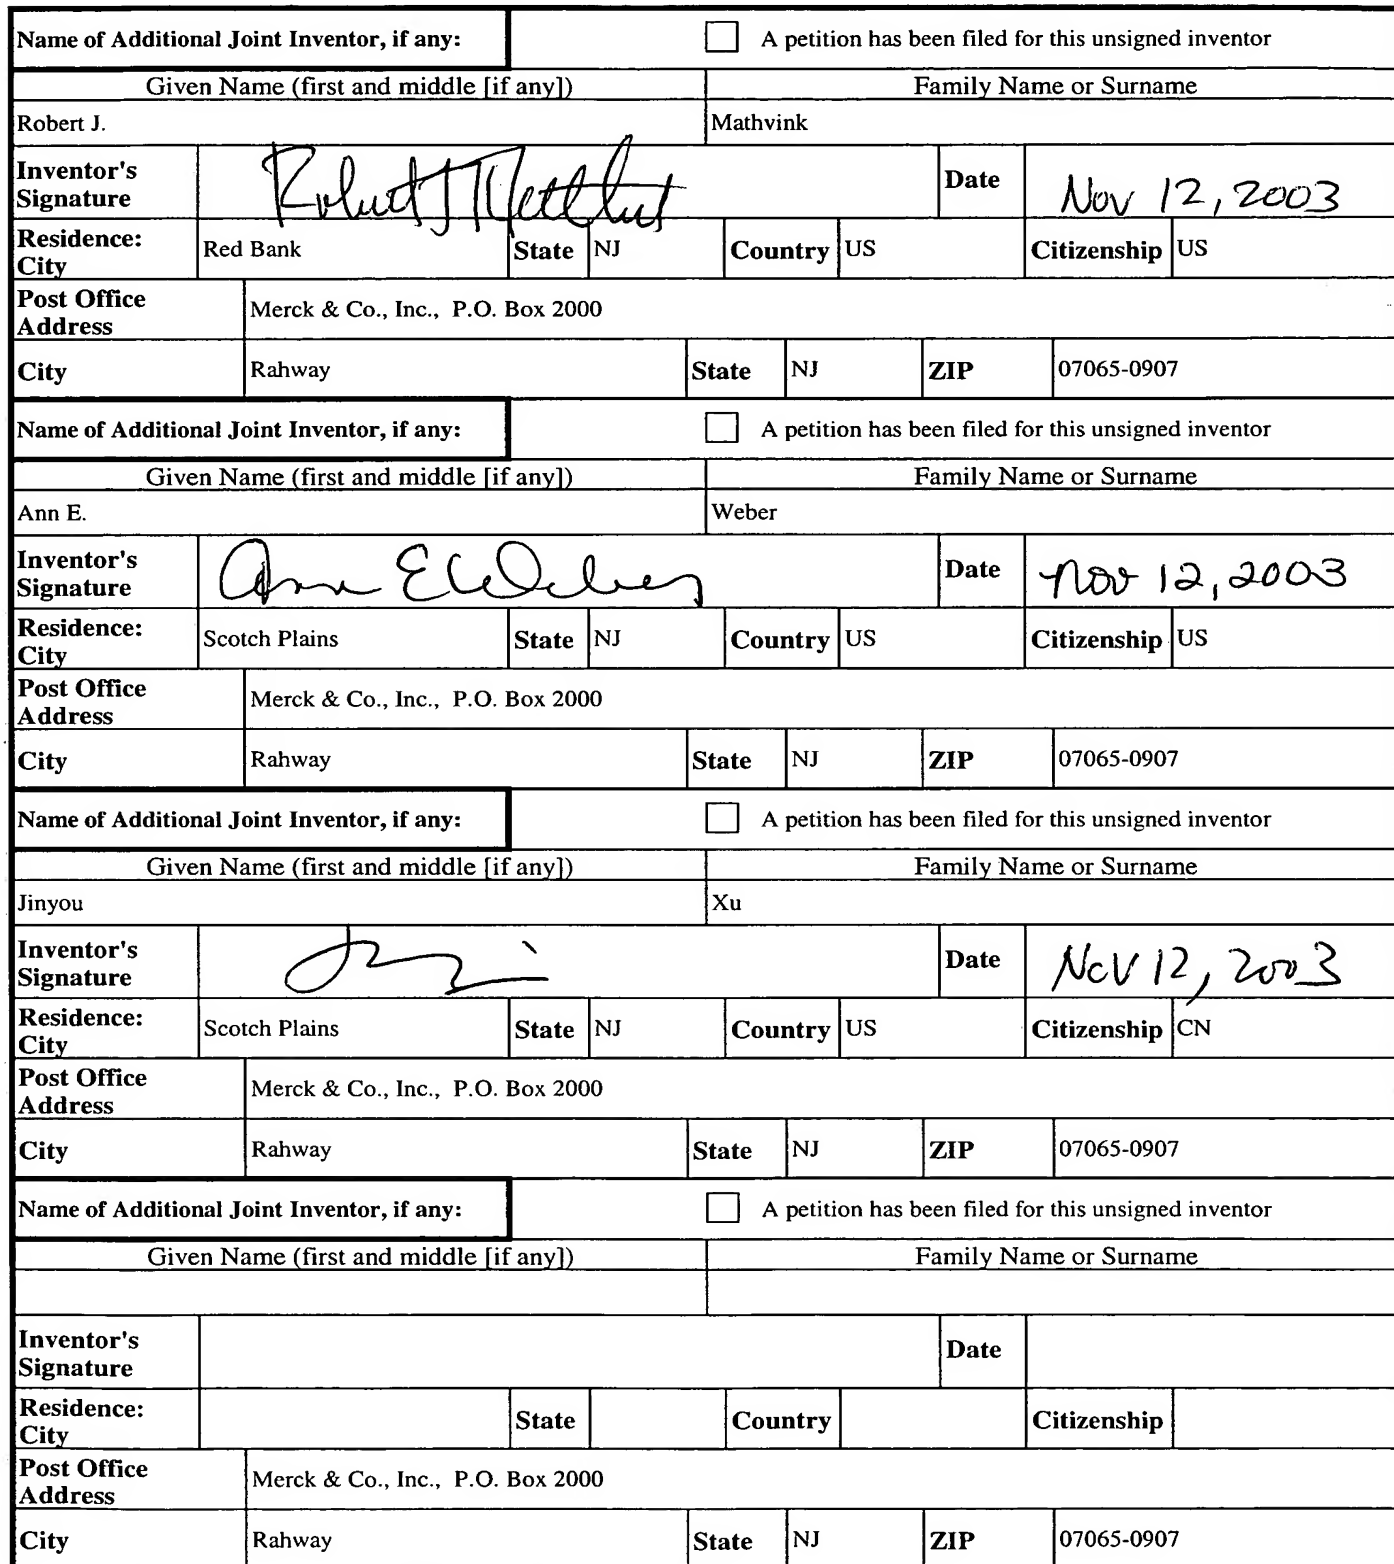 Name of Additional Joint Inventor, if any: A petition has been filed for this unsigned inventor
Given Name (first and middle [if any]) Family Name or Surname
Robert J. Mathvink
Inventor's Signature Date Nov 12, 2003
Residence: City Red Bank State NJ Country US Citizenship US
Post Office Address Merck & Co., Inc., P.O. Box 2000
City Rahway State NJ ZIP 07065-0907
Name of Additional Joint Inventor, if any: A petition has been filed for this unsigned inventor
Given Name (first and middle [if any]) Family Name or Surname
Ann E. Weber
Inventor's Signature Ann E Weber Date Nov 12, 2003
Residence: City Scotch Plains State NJ Country US Citizenship US
Post Office Address Merck & Co., Inc., P.O. Box 2000
City Rahway State NJ ZIP 07065-0907
Name of Additional Joint Inventor, if any: A petition has been filed for this unsigned inventor
Given Name (first and middle [if any]) Family Name or Surname
Jinyou Xu
Inventor's Signature Date Nov 12, 2003
Residence: City Scotch Plains State NJ Country US Citizenship CN
Post Office Address Merck & Co., Inc., P.O. Box 2000
City Rahway State NJ ZIP 07065-0907
Name of Additional Joint Inventor, if any: A petition has been filed for this unsigned inventor
Given Name (first and middle [if any]) Family Name or Surname
Inventor's Signature Date
Residence: City State Country Citizenship
Post Office Address Merck & Co., Inc., P.O. Box 2000
City Rahway State NJ ZIP 07065-0907